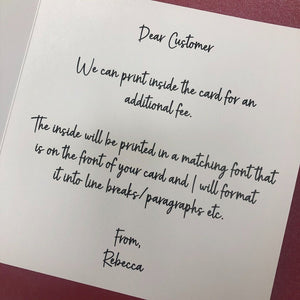 Dear Customer
We can print inside the card for an
additional fee.
The inside will be printed in a matching font that
is on the front of your card and I will format
it into line breaks/paragraphs etc.
From,
Rebecca